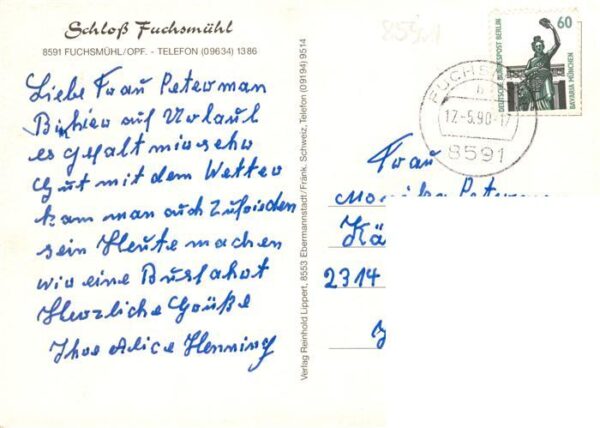 Schloß Fuchsmühl
8591 FUCHSMÜHL/OPF. - TELEFON (09634) 1386
Liebe Frau Peterman
Bin hier auf Urlaub
es gefalt mir sehr
Gut mit dem Wetter
kam man auch Zufrieden
sein Heute machen
wir eine Busfahrt
Herzliche Grüße
Ihre Alice Henning
Verlag Reinhold Lippert, 8553 Ebermannstadt/Fränk. Schweiz, Telefon (09194) 9514
60
DEUTSCHE BUNDESPOST BERLIN
BAVARIA MÜNCHEN
17.-5.90.-17
8591
Frau
2314